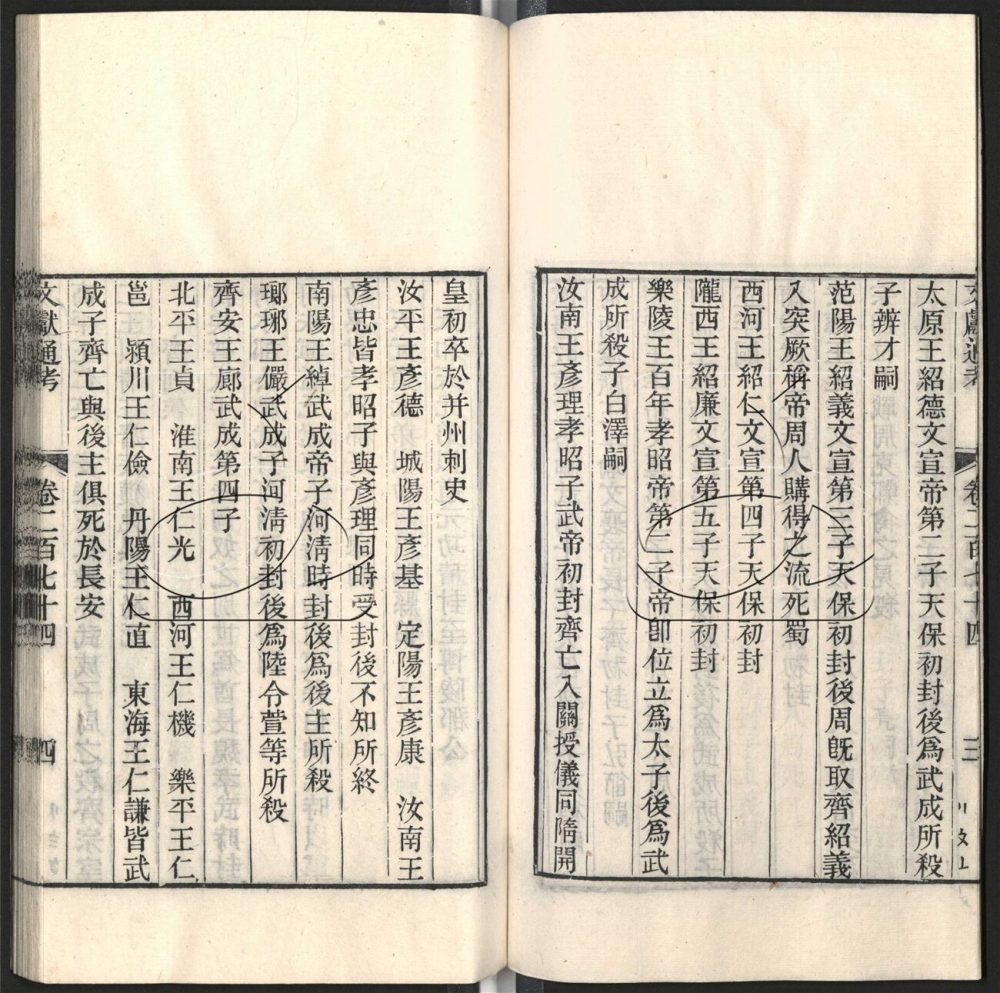 太原王紹德文宣帝第二子天保初封後爲武成所殺
子辨才嗣
范陽王紹義文宣第三子天保初封後周旣取齊紹義
入突厥稱帝周人購得之流死蜀
西河王紹仁文宣第四子天保初封
隴西王紹廉文宣第五子天保初封
樂陵王百年孝昭帝第二子帝卽位立爲太子後爲武
成所殺子白澤嗣
汝南王彥理孝昭子武帝初封齊亡入關授儀同隋開
皇初卒於并州刺史
汝平王彥德 城陽王彥基 定陽王彥康 汝南王
彥忠皆孝昭子與彥理同時受封後不知所終
南陽王綽武成帝子河清時封後爲後主所殺
瑯琊王儼武成子河清初封後爲陸令萱等所殺
齊安王廓武成第四子
北平王貞 淮南王仁光 西河王仁機 樂平王仁
邕 潁川王仁儉 丹陽王仁直 東海王仁謙皆武
成子齊亡與後主俱死於長安
文獻通考 卷二百七十四 四